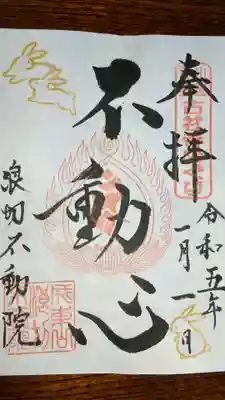 奉拝
令和五年
一月一日
不動心
浪切不動院